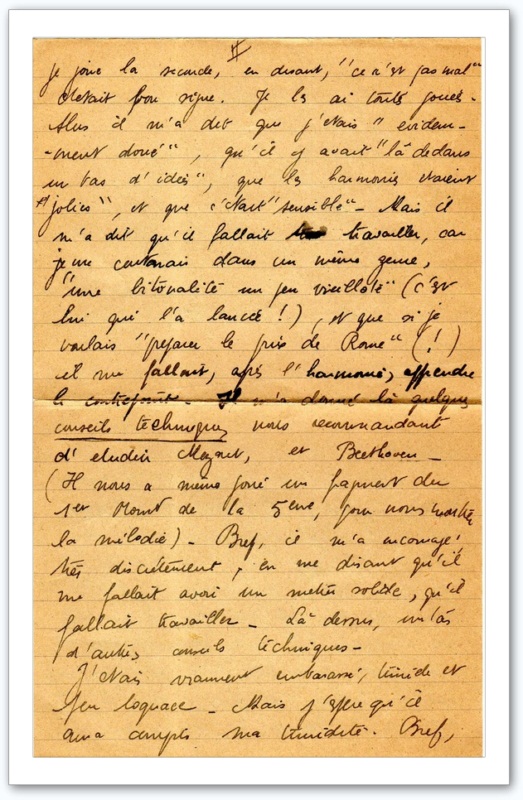 II
je joue la seconde, en disant, "ce n'est pas mal"
c'etait bon signe. Je les ai toutes jouées.
Alors il m'a dit que j'étais "évidem-
-ment doué", qu'il y avait "là dedans
un tas d'idées", que les harmonies étaient
"jolies", et que c'était "sensible" - Mais il
m'a dit qu'il fallait travailler, car
je me cantonais dans un même genre,
"une bitonalité un peu vieillote" (c'est
lui qui l'a lancée !), et que si je
voulais "préparer le prix de Rome" (!)
il me fallait, après l'harmonie, apprendre
le contrepoint - Il m'a donné là quelques
conseils techniques, nous recommandant
d'etudier Mozart, et Beethoven -
(Il nous a même joué un fragment du
1er Mvmt de la 5ème, pour nous montrer
la mélodie) - Bref, il m'a encouragé
très discrètement, en me disant qu'il
me fallait avoir un métier solide, qu'il
fallait travailler - Là dessus, un tas
d'autres conseils techniques -
J'étais vraiment embarassé, timide et
peu loquace - Mais j'espère qu'il
aura compris ma timidité. Bref,